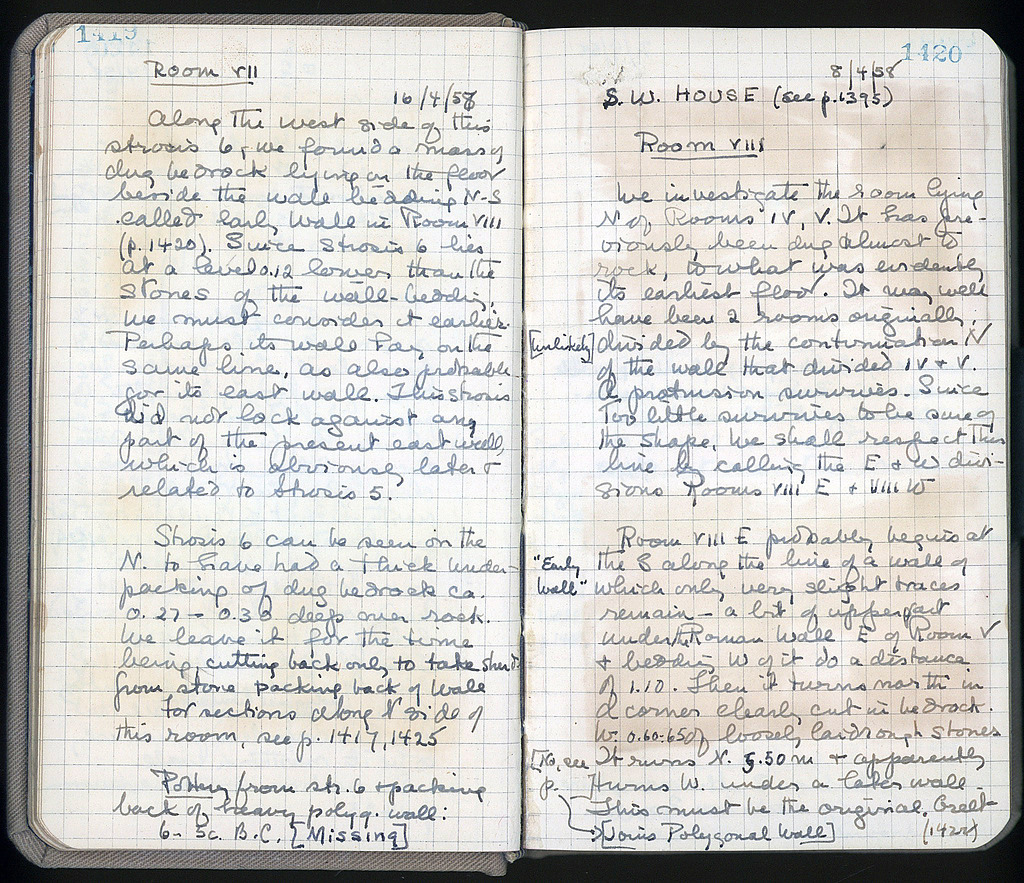 1419
Room VII
16/4/58
Along the west side of this
strosis 6, we found a mass of
dug bedrock lying on the floor
beside the wall bedding N-S
called early wall in Room VIII
(p. 1420). Since strosis 6 lies
at a level 0.12 lower than the
stones of the wall-bedding,
we must consider it earlier.
Perhaps its wall lay on the
same line, as also probable
for its east wall. This strosis
did not lock against any
part of the present east wall,
which is obviously later &
related to Strosis 5.
Strosis 6 can be seen on the
N. to have had a thick under-
packing of dug bedrock ca.
0.27-0.30 deep over rock.
We leave it for the time
being, cutting back only to take sherds
from stone packing back of wall
For sections along N side of
this room, see p. 1417, 1425
Pottery from str. 6 & packing
back of heavy polyg. wall:
6-5c. B.C. [Missing]
1420
8/4/58
S.W. HOUSE (see p. 1395)
Room VIII
We investigate the room lying
N of Rooms IV, V. It has pre-
viously been dug almost to
rock, to what was evidently
its earliest floor. It may well
have been 2 rooms originally,
[unlikely] divided by the continuation N
of the wall that divided IV & V.
A protrusion survives. Since
too little survives to be sure of
the shape, we shall respect this
line by calling the E & W divi-
sions Rooms VIII E & VIII W
Room VIII E probably begins at
"Early Wall" the S along the line of a wall of
which only very slight traces
remain - a bit of upper part
under Roman Wall E of Room V
& bedding W of it to a distance
of 1.10. Then it turns north in
a corner clearly cut in bedrock.
W. 0.60-.65 of loosely laid rough stones
[No, see It runs N. 5.50 m & apparently
p. turns W. under a later wall.
This must be the original East-
→[Joins Polygonal Wall] (1422)